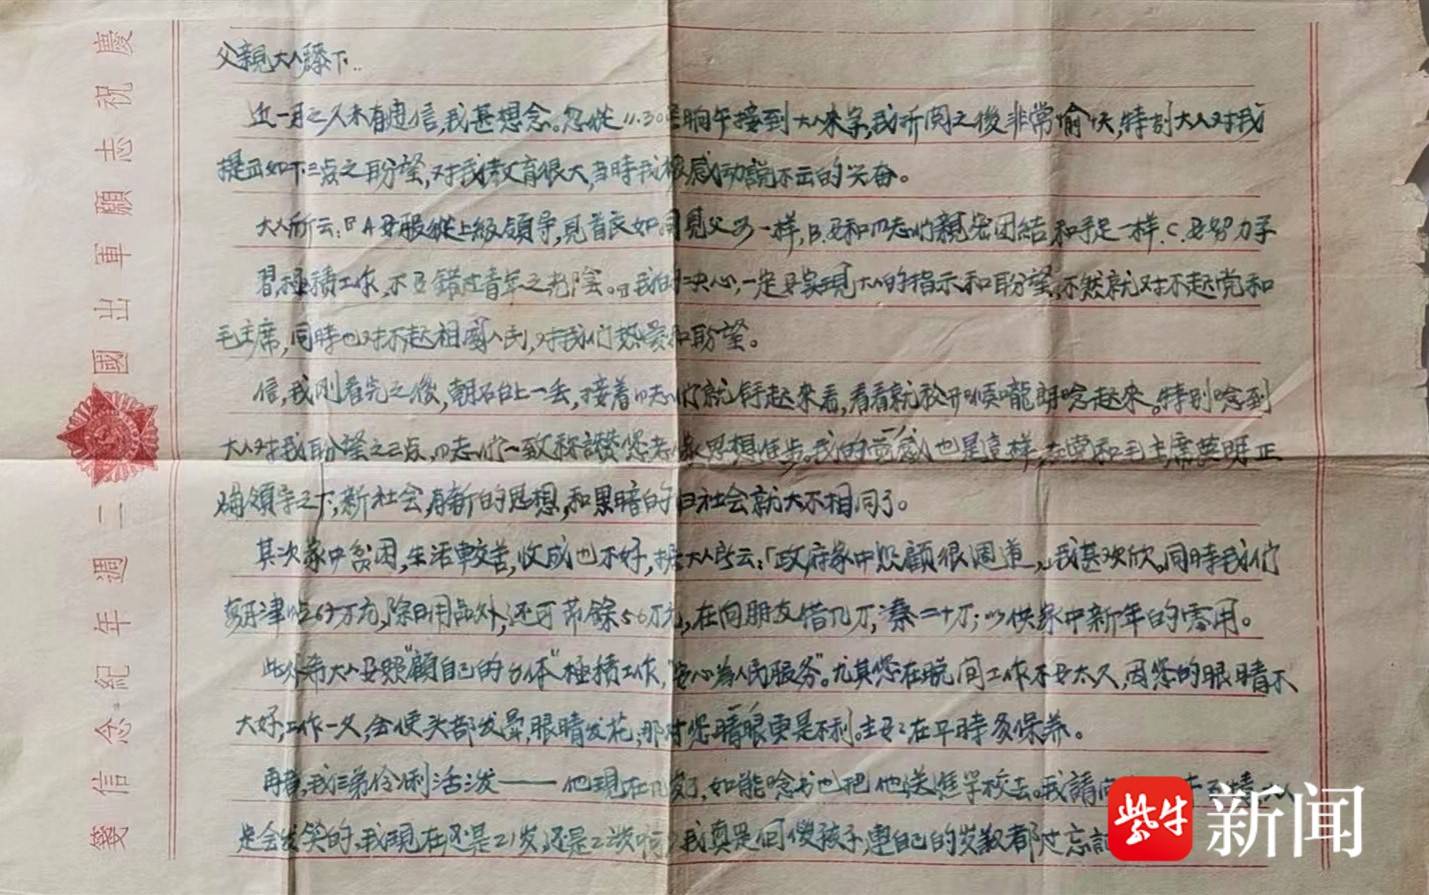 慶祝志願軍出國二週年紀念信箋
父親大人膝下..
近一月之久未有通信,我甚想念。忽從11.30日晌午接到大人来字,我听阅之後非常愉快,特别大人对我
提出如下三点之盼望,对我教育很大,当時我被感动說不出的兴奋。
大人所云:『A要服從上級領导,見首長如同見父母一样,B.要和同志们親密团結,和手足一样.C.要努力学
習,極積工作,不要錯过青年之光陰。』我的决心,一定要实現大人的指示和盼望,不然就对不起党和
毛主席,同時也对不起祖國人民,对我们热爱和盼望。
信,我刚看完之後,朝石台上一丢,接着同志们就抒起来看,看看就放开喉嚨朗唸起来。特别唸到
大人对我盼望之三点,同志们一致称讃您老人家思想進步。我的 感也是這样,在党和毛主席英明正
确領导之下,新社会,有新的思想,和黑暗的旧社会就大不相同了。
其次家中贫困,生活較苦,收成也不好,据大人所云:「政府家中照顧很週道」,我甚欢欣。同時我们
每月津 元,除日用品外,还可节餘5.6万元,在向朋友借几万,湊二十万;以供家中新年的零用。
此外希大人要照"顧自己的身体"極積工作,"安心為人民服务"。尤其您在晚间工作不要太久,因您的眼睛不
大好,工作一久,会使头部发暈,眼睛发花,那对您 眼更是不利。主要在平時多保养。
再者,我三弟伶俐活泼——他現在几岁了,如能唸书也把他送進学校去。我請问
定会发笑的.我現在还是21岁,还是22岁呵?我真是個傻孩子,連自己的岁数都 忘記
紫牛新闻